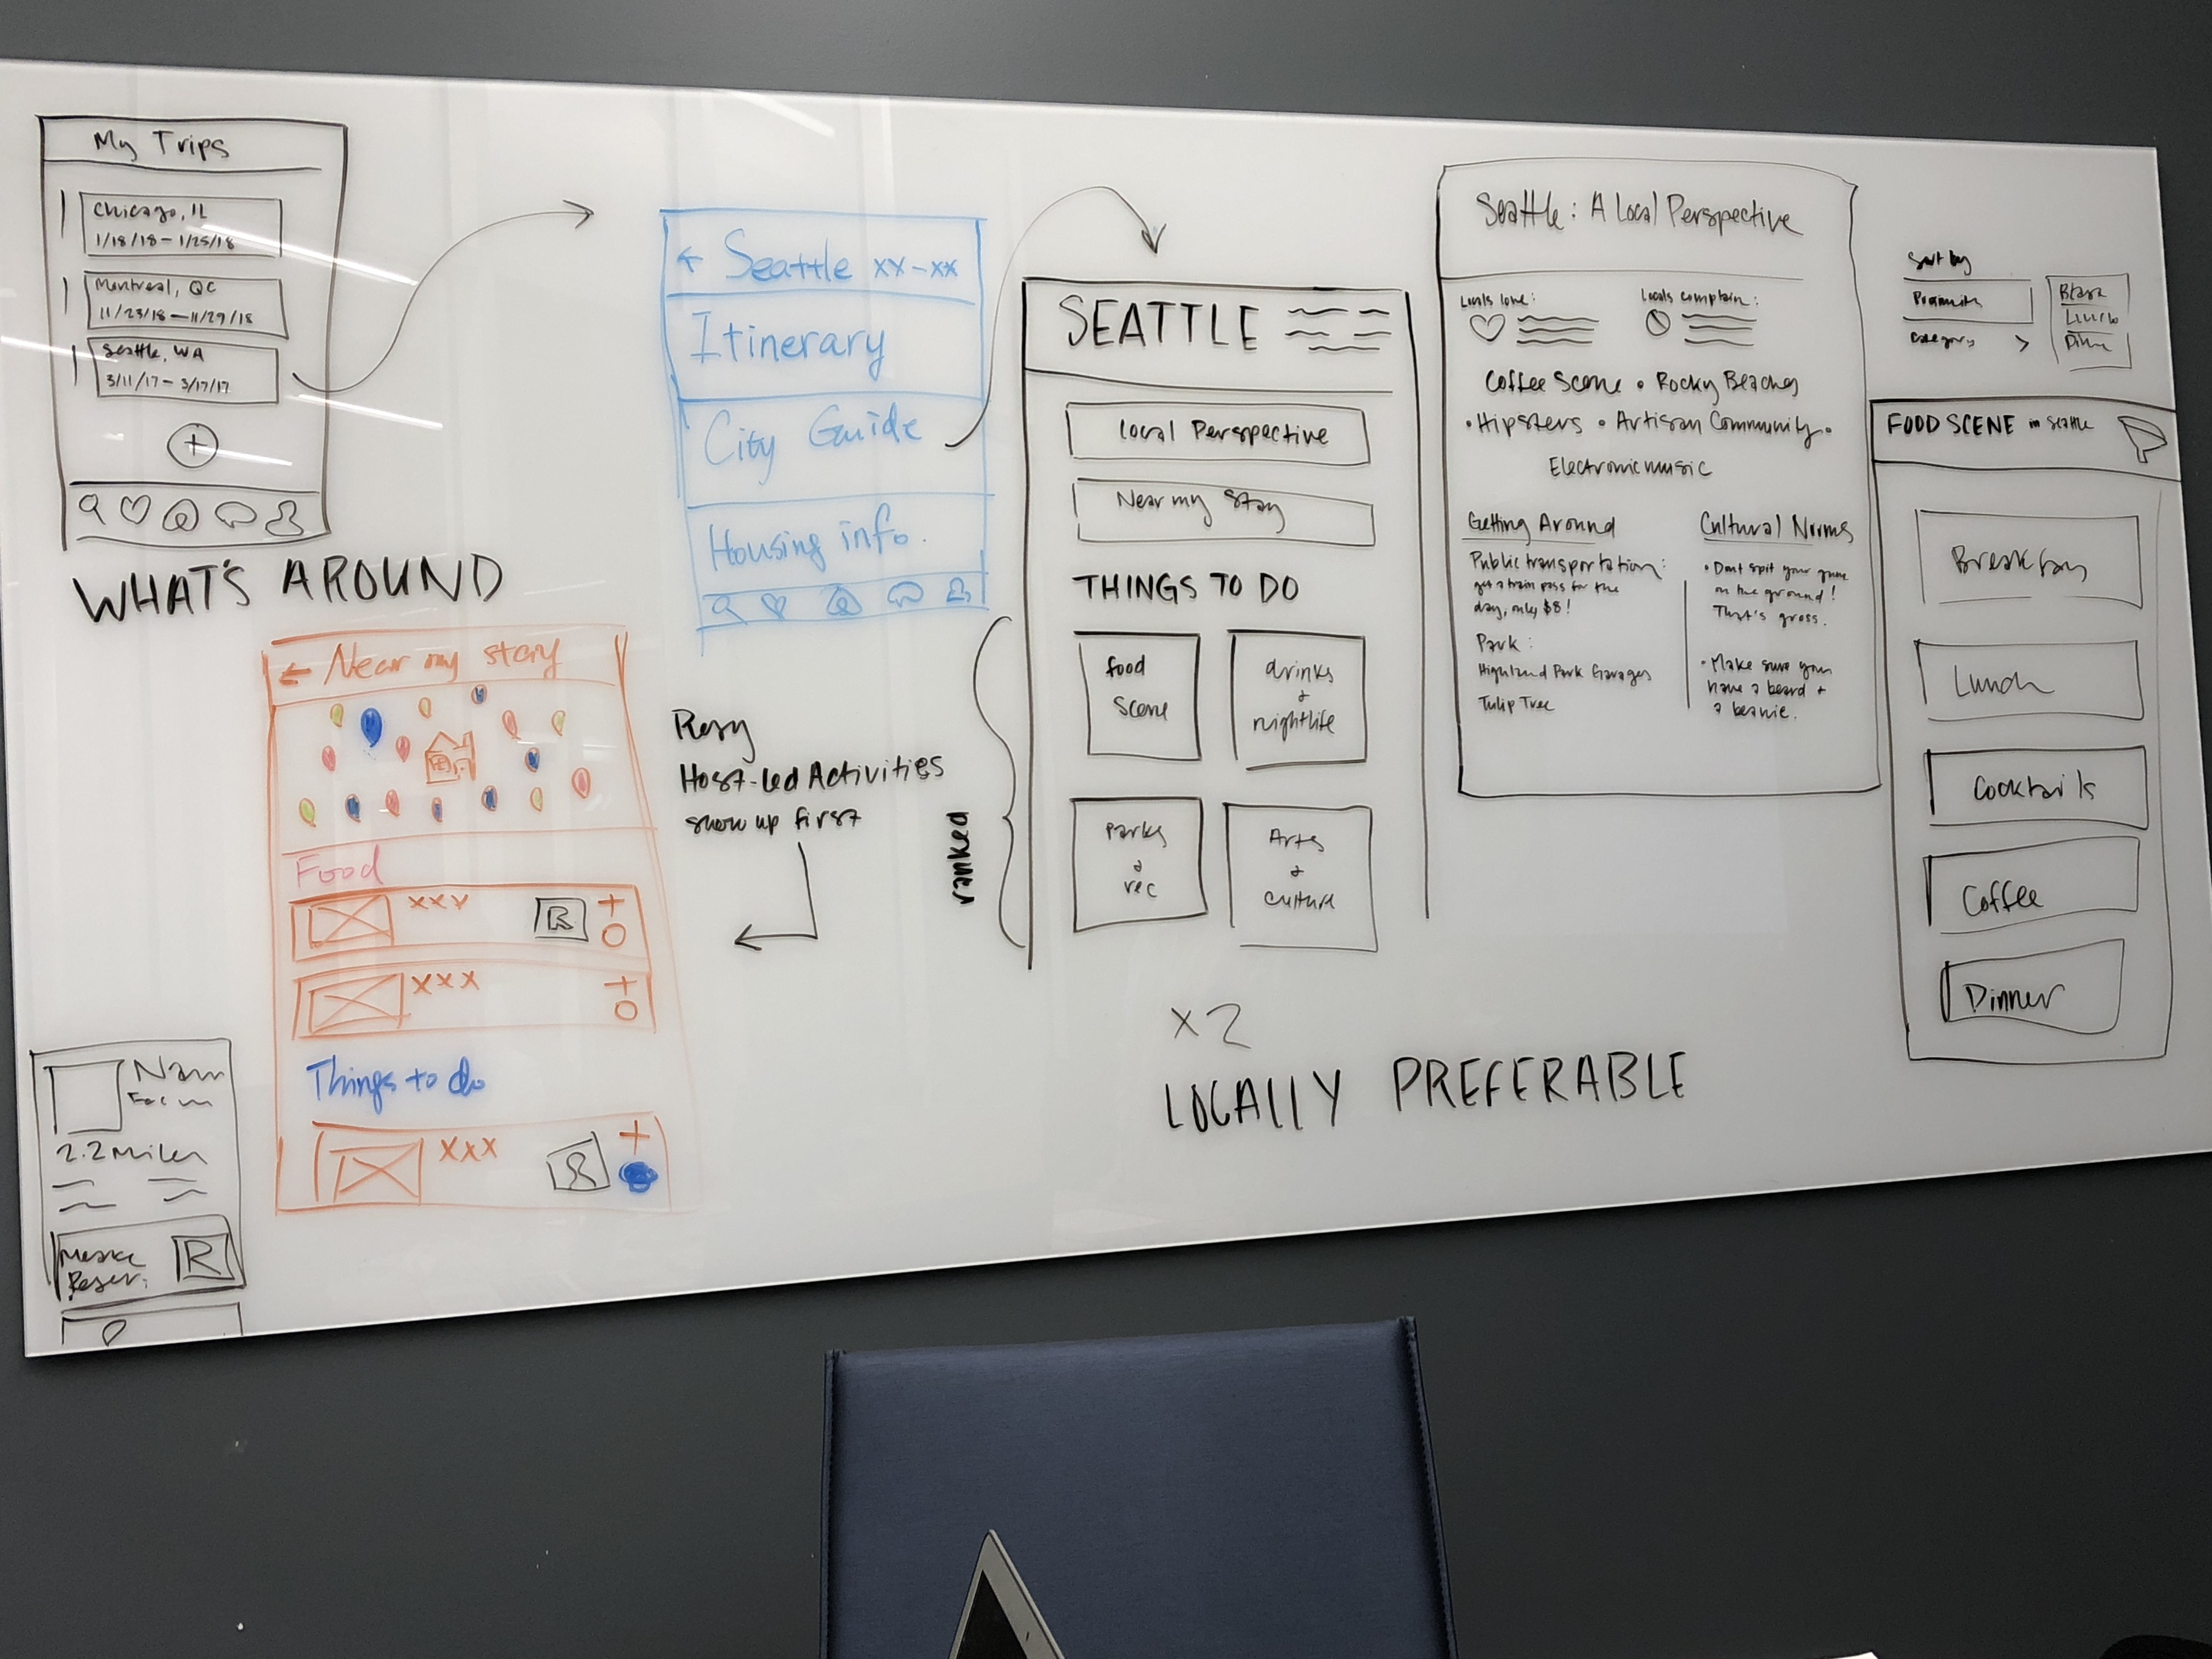 My Trips
Chicago, IL
1/18/18 - 1/25/18
Montreal, QC
11/23/18 - 11/29/18
Seattle, WA
3/11/17 - 3/17/17
+
WHAT'S AROUND
← Near my stay
Food
XXX
R
+
XXX
+
Things to do
XXX
+
2.2 miles
Make
Reser.
R
← Seattle xx-xx
Itinerary
City Guide
Housing info.
Resy
Host-Led Activities
show up first
SEATTLE
Local Perspective
Near my stay
THINGS TO DO
ranked
food
scene
drinks
+
nightlife
Parks
+
rec
Arts
+
culture
x2
LOCALLY PREFERABLE
Seattle: A Local Perspective
Locals love:
Locals complain:
Coffee Scene • Rocky Beaches
• Hipsters • Artisan Community •
Electronic music
Getting Around
Public transportation:
get a train pass for the
day, only $8!
Park:
Highland Park Garages
Tulip Tree
Cultural Norms
• Dont spit your gum
on the ground!
That's gross.
• Make sure you
have a beard +
a beanie.
Sort by
Category >
Lunch
FOOD SCENE in Seattle
Breakfas
Lunch
Cocktails
Coffee
Dinner